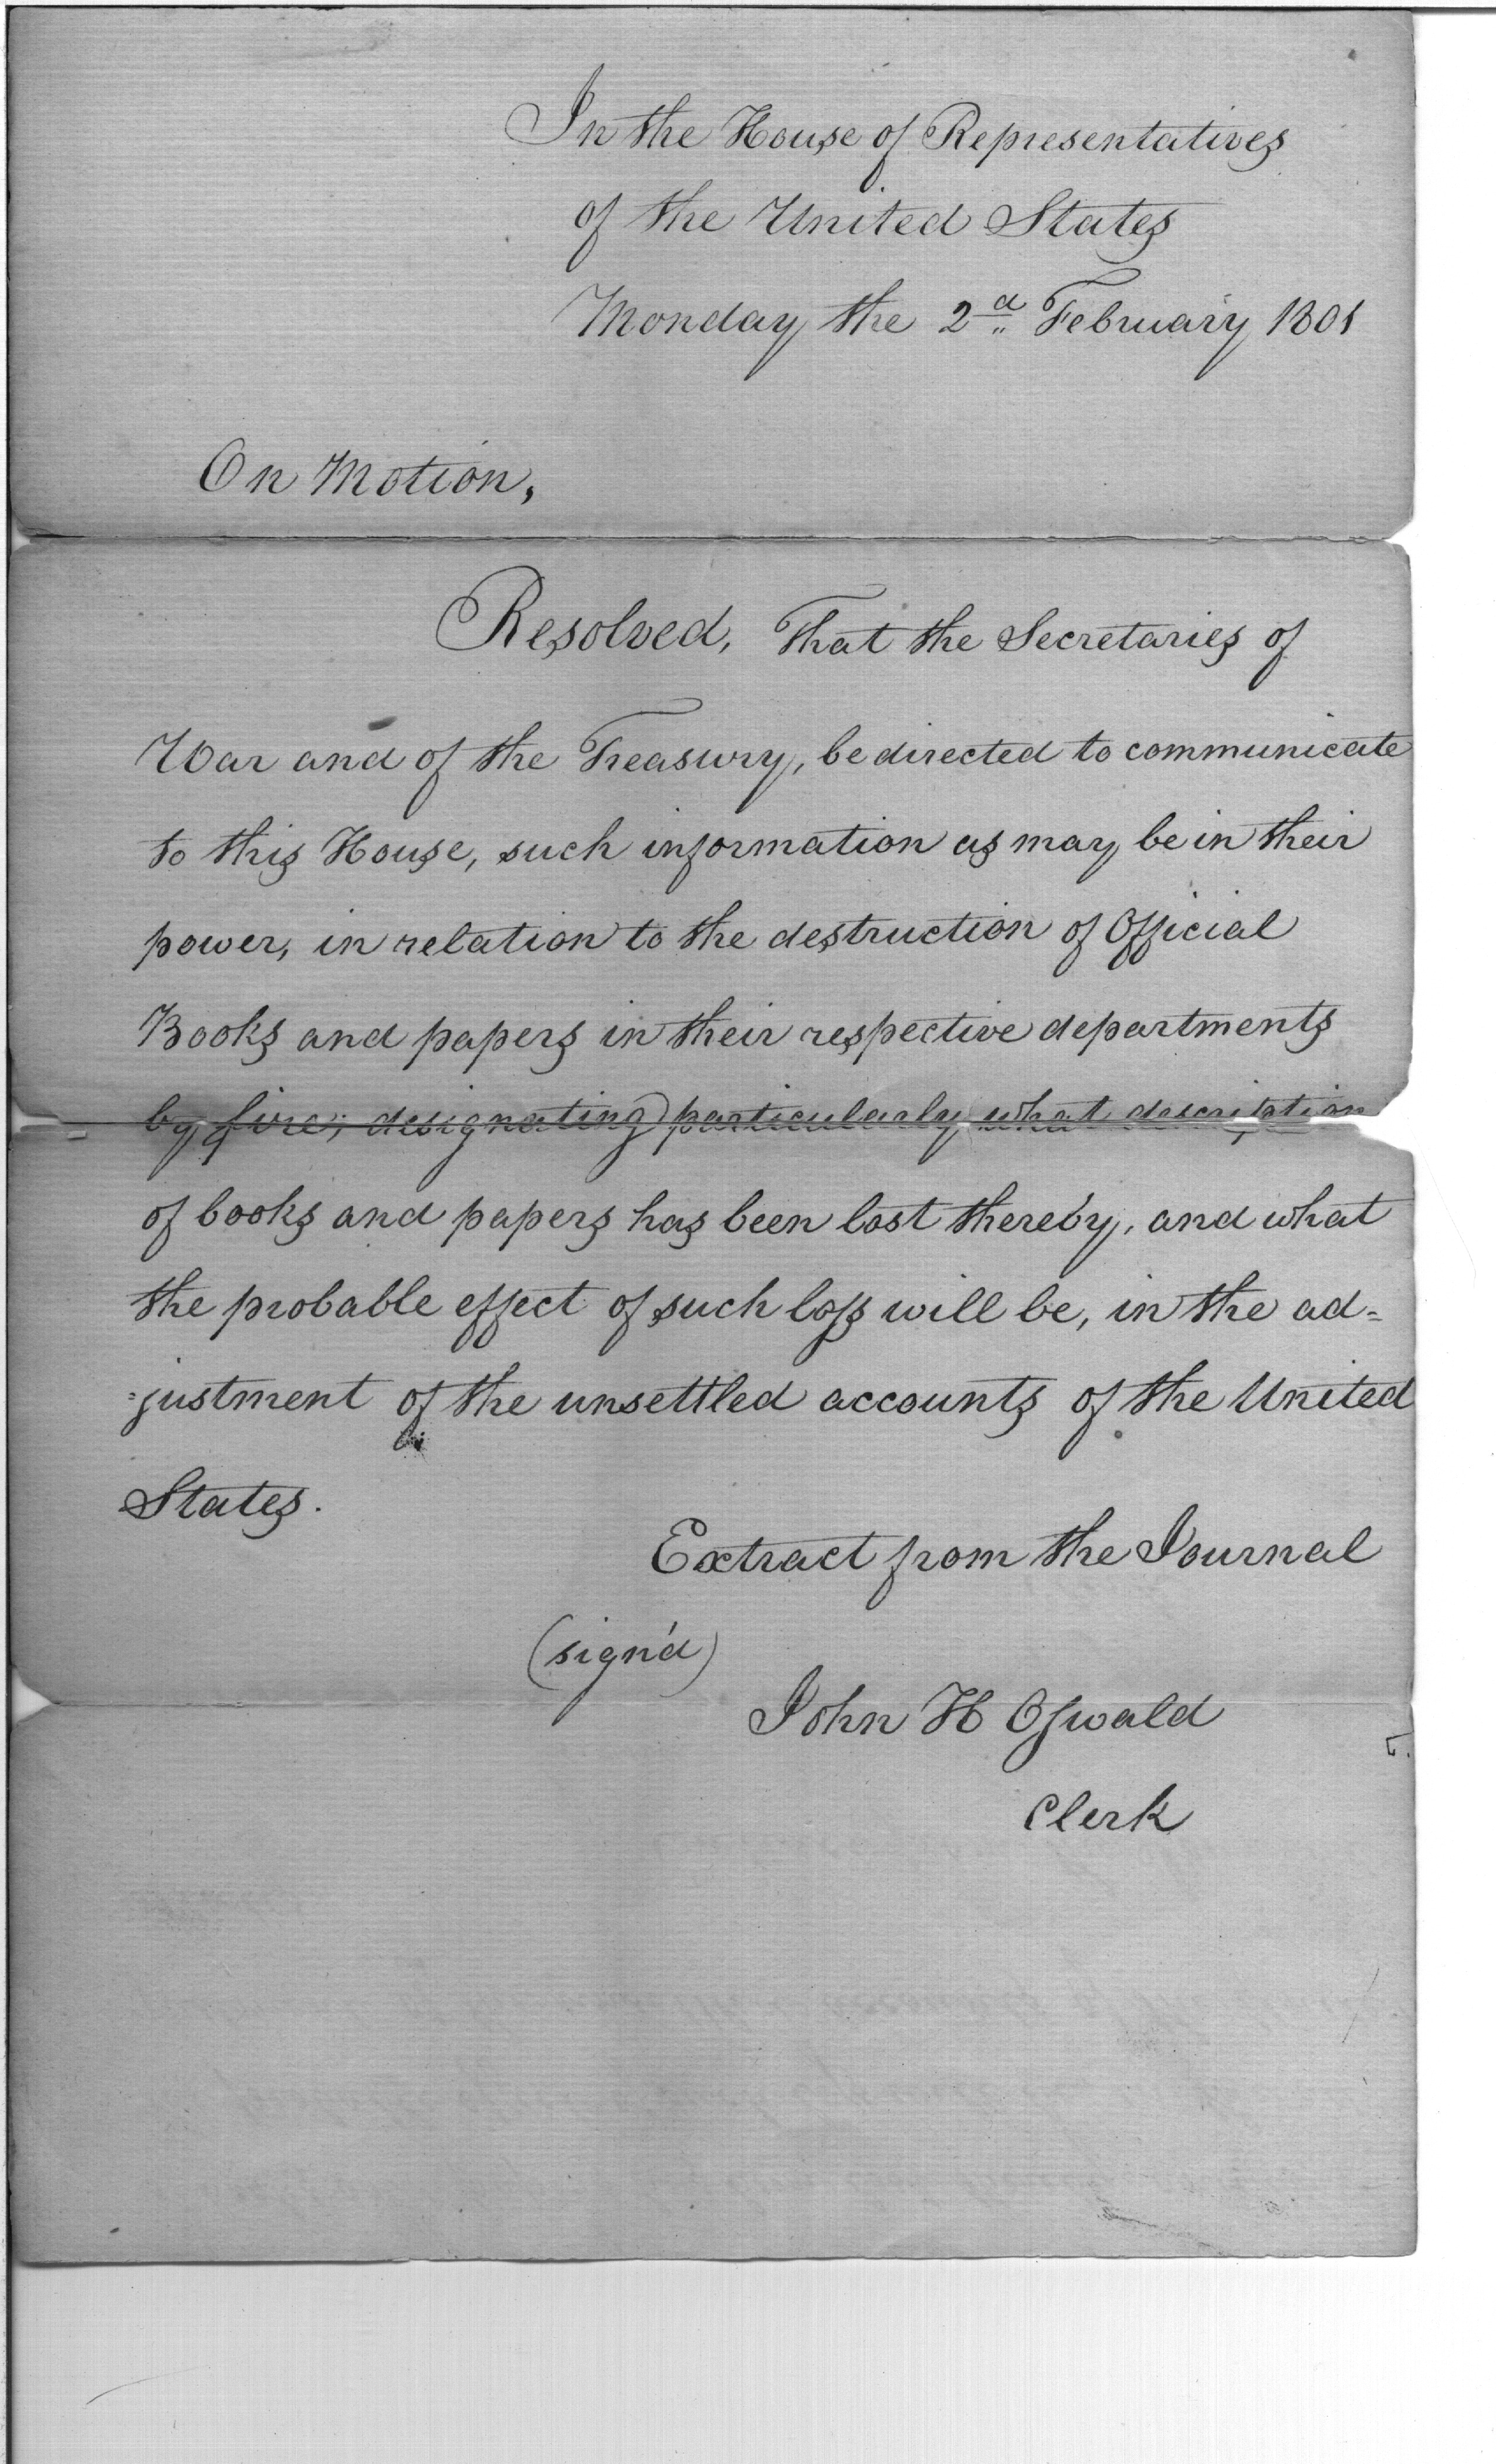 In the House of Representatives
of the United States
Monday the 2d February 1801
On Motion,
Resolved, That the Secretaries of
War and of the Treasury, be directed to communicate
to this House, such information as may be in their
power, in relation to the destruction of Official
Books and papers in their respective departments
by fire; designating particularly what description
of books and papers has been lost thereby, and what
the probable effect of such loss will be, in the ad=
=justment of the unsettled accounts of the United
States.
Extract from the Journal
(sign'd)
John H Oswald
Clerk